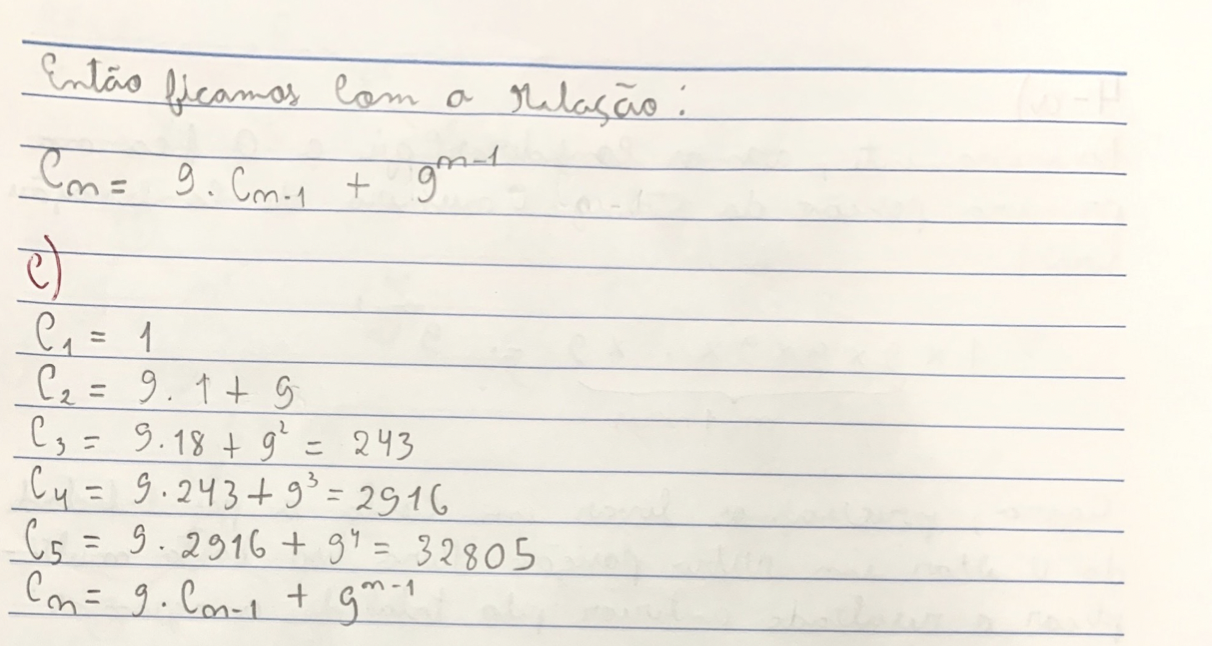 Então ficamos com a relação:
Cₙ = 9 . Cₙ₋₁ + 9ⁿ⁻¹
C)
C₁ = 1
C₂ = 9 . 1 + 9
C₃ = 9 . 18 + 9² = 243
C₄ = 9 . 243 + 9³ = 2916
C₅ = 9 . 2916 + 9⁴ = 32805
Cₙ = 9 . Cₙ₋₁ + 9ⁿ⁻¹